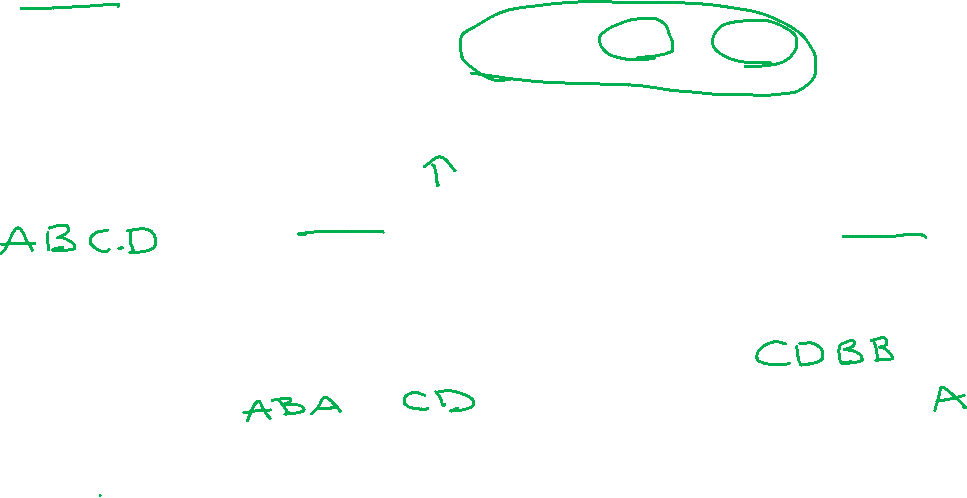 ABC.D
CDBB
ABA CD A